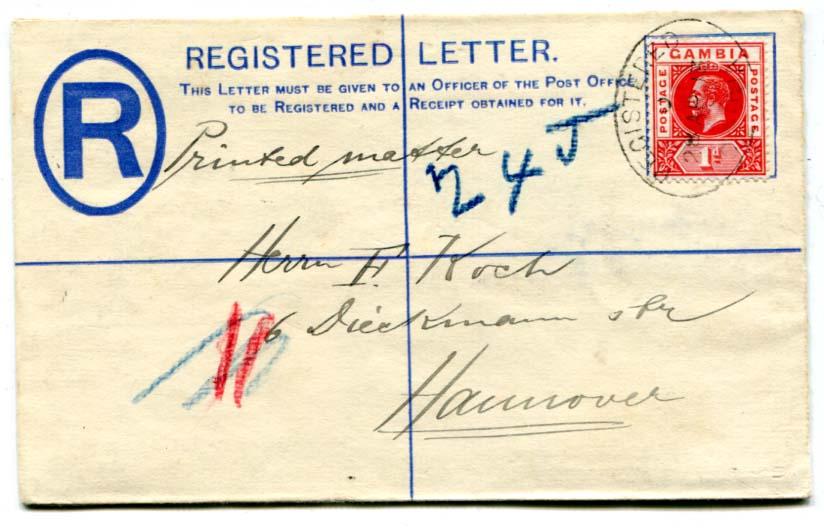 REGISTERED LETTER.
THIS LETTER MUST BE GIVEN TO AN OFFICER OF THE POST OFFICE
TO BE REGISTERED AND A RECEIPT OBTAINED FOR IT.
R
GAMBIA
POSTAGE
POSTAGE
1d
REGISTERED
Printed matter
245
Herrn F. Koch
6 Dieckmann str
Hannover
11